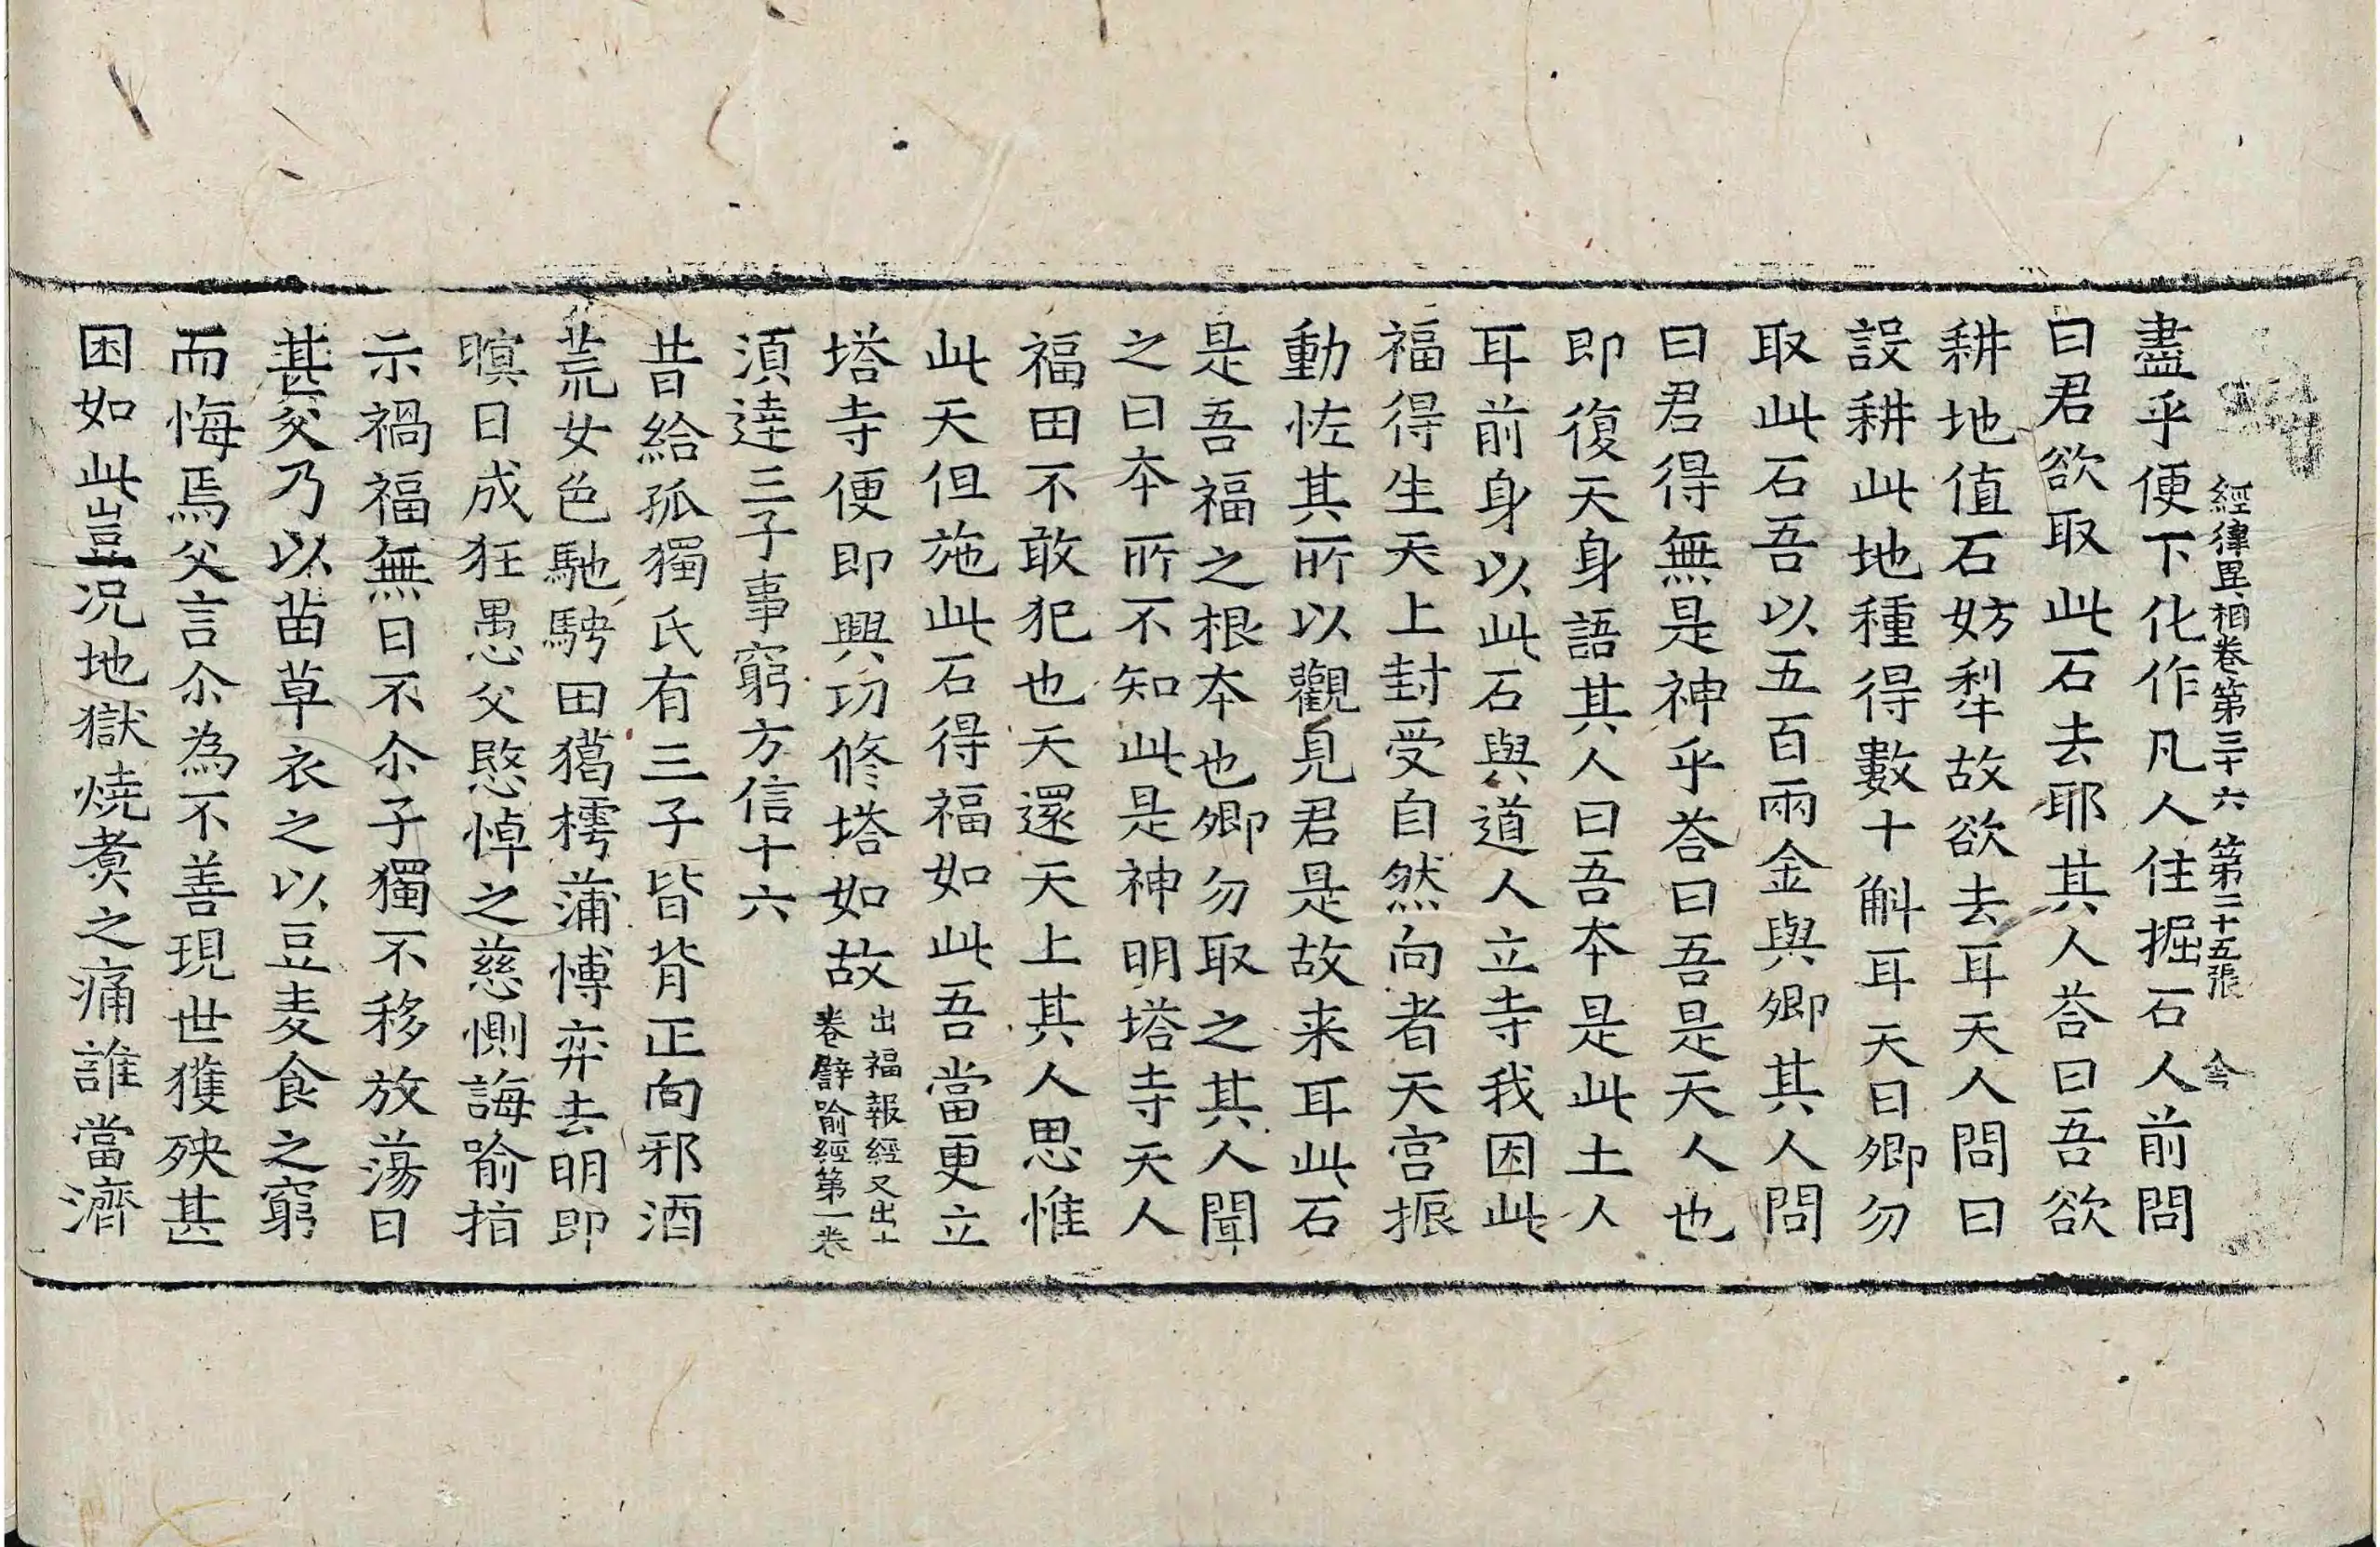 經律異相卷第三十六 第二十五張
盡乎便下化作凡人住掘石人前問
曰君欲取此石去耶其人荅曰吾欲
耕地值石妨犁故欲去耳天人問曰
設耕此地種得數十斛耳天曰卿勿
取此石吾以五百兩金與卿其人問
曰君得無是神乎荅曰吾是天人也
即復天身語其人曰吾本是此土人
耳前身以此石與道人立寺我因此
福得生天上封受自然向者天宫振
動恠其所以觀見君是故来耳此石
是吾福之根本也卿勿取之其人聞
之曰本所不知此是神明塔寺天人
福田不敢犯也天還天上其人思惟
此天但施此石得福如此吾當更立
塔寺便即興功修塔如故出福報經又出十
卷譬喻經第一卷
湏逹三子事窮方信十六
昔給孤獨氏有三子皆背正向邪酒
荒女色馳騁田獦樗蒲博弈去明即
暝日成狂愚父愍悼之慈惻誨喻指
示禍福無日不尒子獨不移放蕩日
甚父乃以苗草衣之以豆麦食之窮
而悔焉父言尒為不善現世獲殃甚
困如此豈况地獄燒煑之痛誰當濟